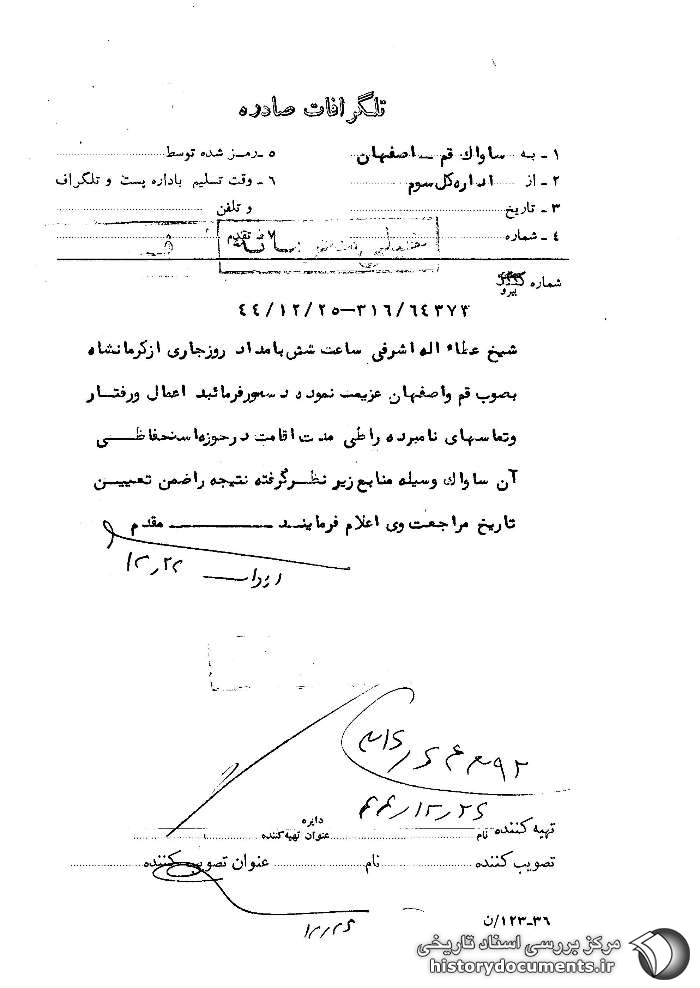 تلگرافات صادره
۱ - به ساواك قم - اصفهان
۵ - رمز شده توسط
۲ - از اداره کل سوم
۶ - وقت تسلیم باداره پست و تلگراف
۳ - تاریخ
و تلفن
۴ - شماره
۷ - تقدم
شماره
پیرو
۴۴/۱۲/۲۵-۳۱۶/۶٤۳۷۳
شیخ عطاء اله اشرفی ساعت شش بامداد روزجاری ازکرمانشاه
بصوب قم واصفهان عزیمت نموده دستورفرمائید اعمال ورفتار
وتماسهای نامبرده راطی مدت اقامت درحوزه استحفاظی
آن ساواك وسیله منابع زیر نظرگرفته نتیجه راضمن تعیین
تاریخ مراجعت وی اعلام فرمایند مقدم
۴۴/۱۲/۲۶
تهیه کننده
نام
دایره
عنوان تهیه کننده
تصویب کننده
نام
عنوان تصویب کننده
۱۲/۲۶
۳۶-۱۲۳/ن
مرکز بررسی اسناد تاریخی
historydocuments.ir